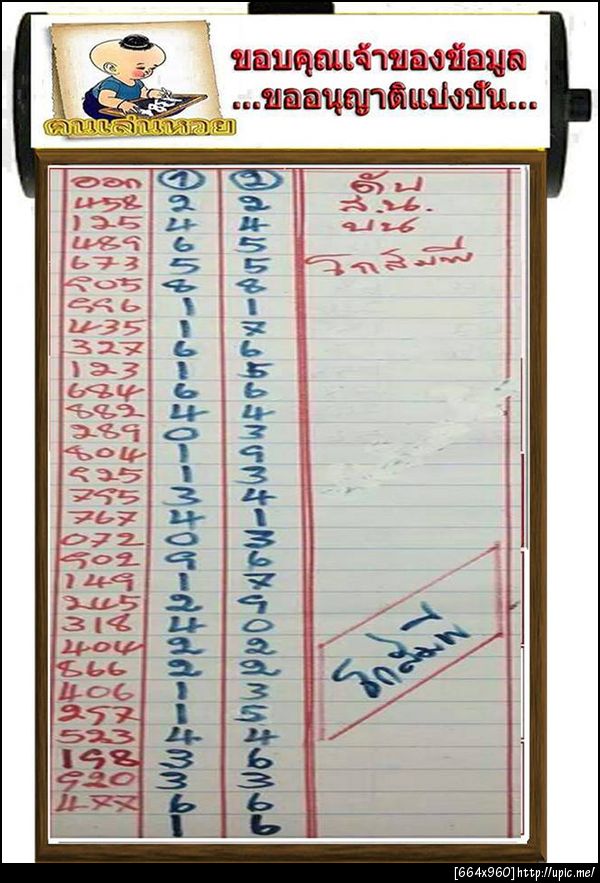 ขอบคุณเจ้าของข้อมูล
...ขออนุญาติแบ่งปัน...
คนเล่นหวย
ออก ① ② ดับ
458 2 2 ส.น.
125 4 4 บน
489 6 5
673 5 5 โกสัมพี
905 8 8
996 1 1
435 1 7
327 6 6
123 1 5
684 6 6
882 4 4
289 0 3
804 1 9
925 1 3
795 3 4
767 4 1
072 0 3
902 9 6
149 1 7
245 2 9
318 4 0
404 2 2
866 2 2
406 1 3
297 1 5
523 4 4
198 3 6
920 3 3
477 6 6
1 6
โกสัมพี
[664x960]http://upic.me/